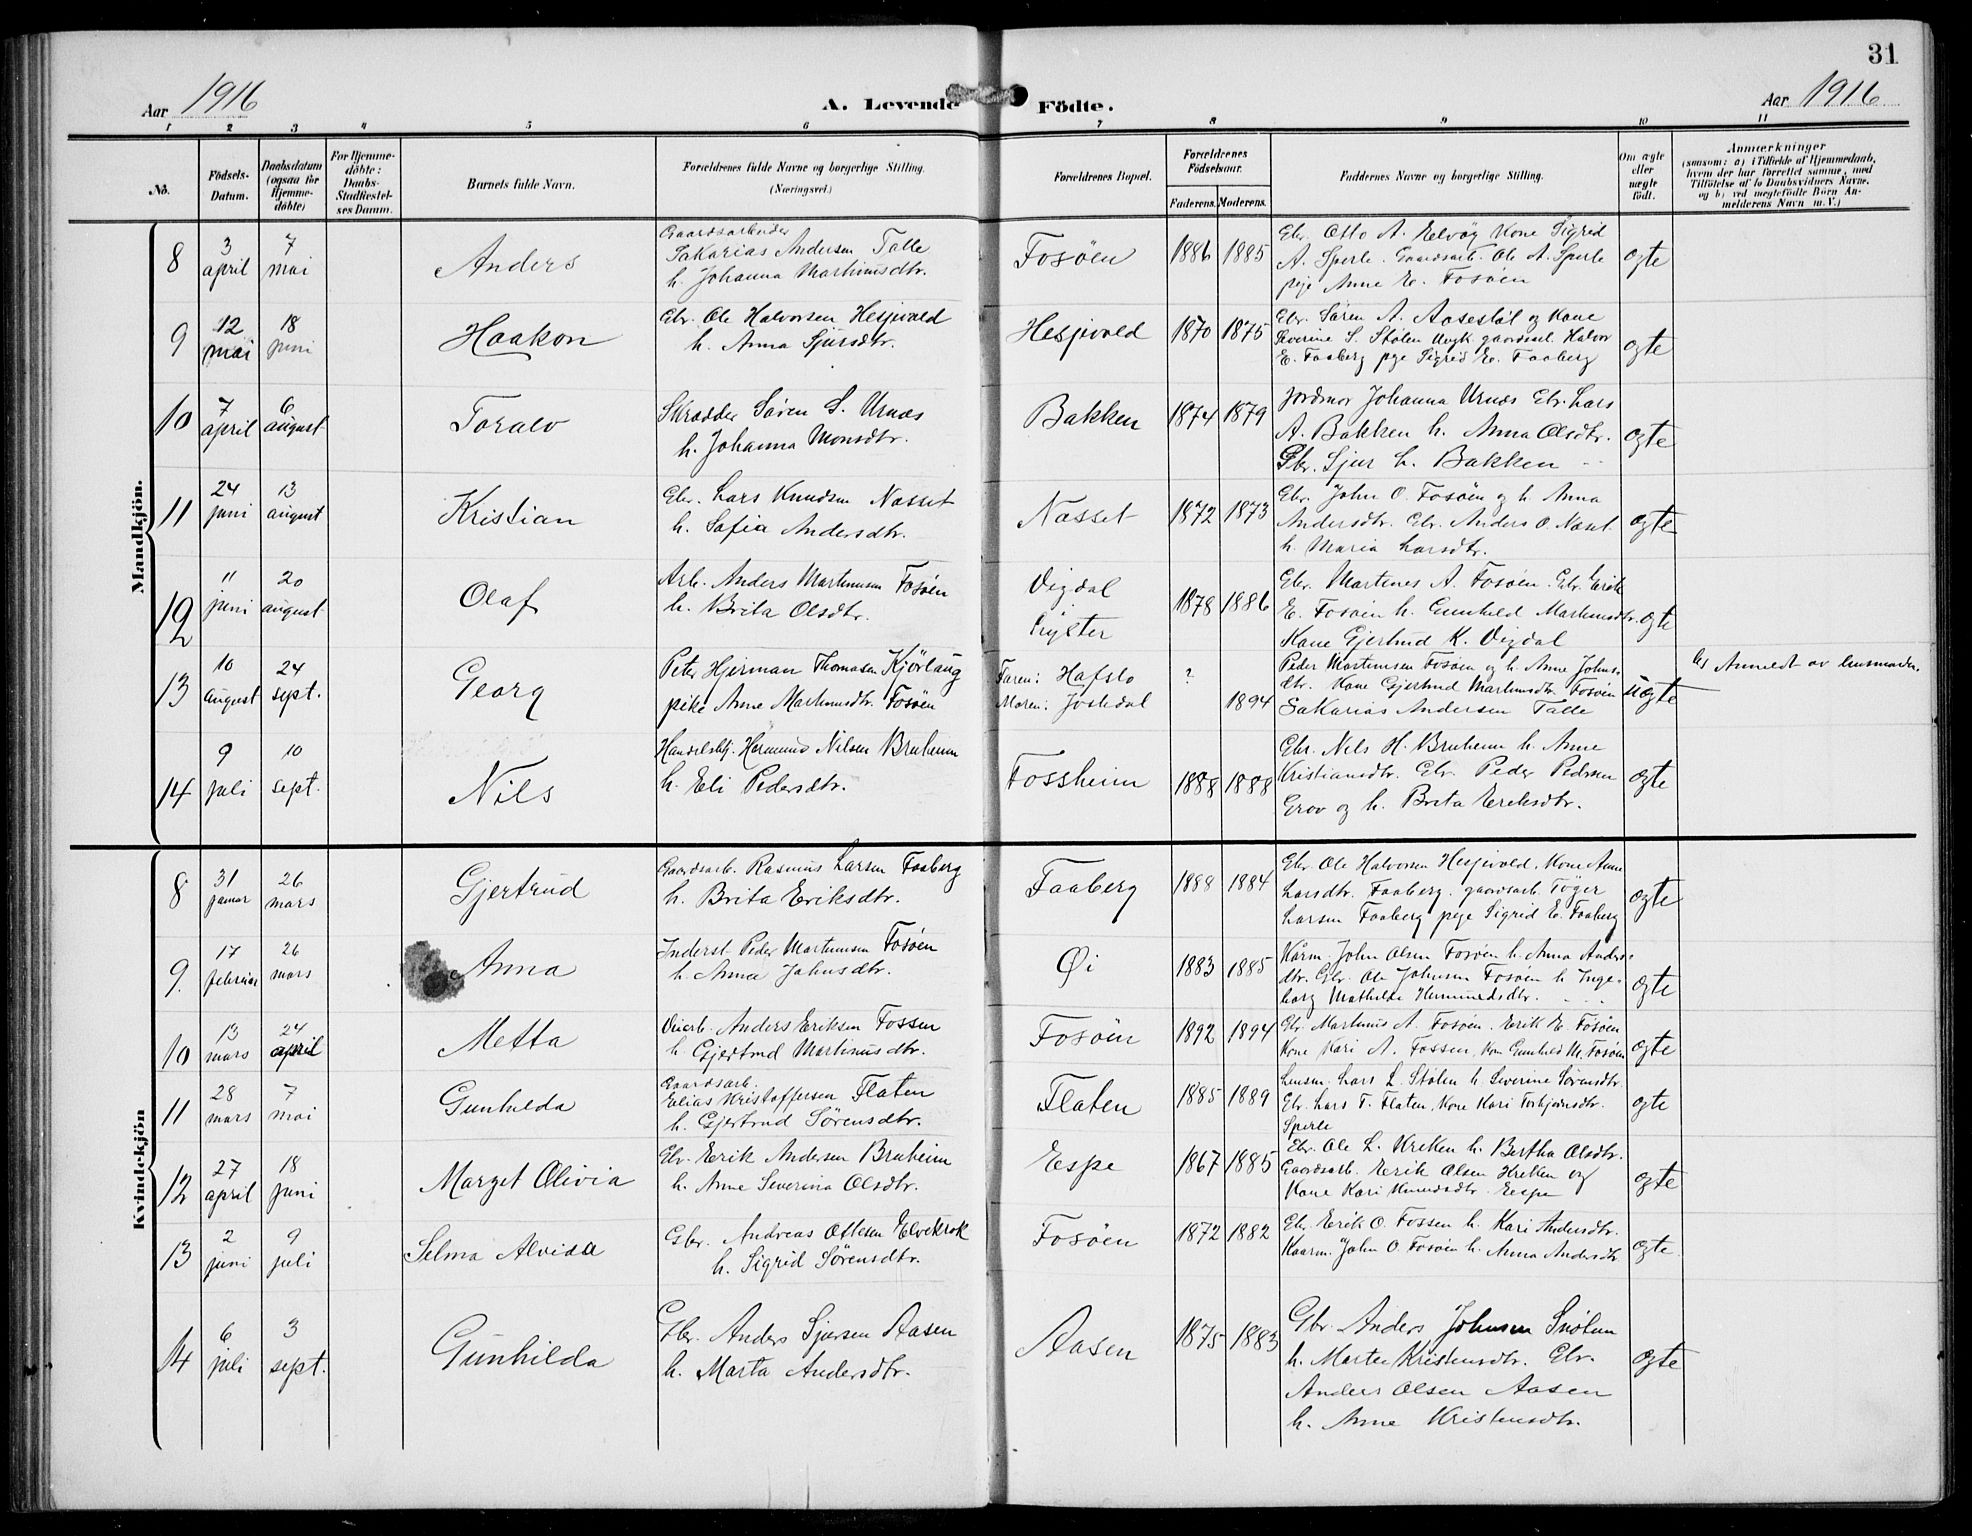 31
Aar 1916 A. Levende Födte. Aar 1916
1 2 3 4 5 6 7 8 9 10 11
No. Födsels-Datum. Daabsdatum (ogsaa for Hjemme-döbte) For Hjemme-döbte: Daabs-Stadfæstel-ses Datum. Barnets fulde Navn. Forældrenes fulde Navne og borgerlige Stilling. (Næringsvei.) Forældrenes Bopæl. Forældrenes Födselsaar. Faderens. Moderens. Faddernes Navne og borgerlige Stilling. Om ægte eller uægte födt. Anmærkninger (saasom: a) i Tilfælde af Hjemmedaab, hvem der har forrettet samme, med Tilföielse af to Daabsvidners Navne, og b) ved uægtefödte Börn An-melderens Navn m. V.)
Mandkjön.
8 3 april 7 mai Anders Gaardsarbeider Sakarias Andersen Talle
h. Johanna Martinusdtr. Fosöen 1886 1885 Gbr. Otto A. Elvög Kone Sigrid
A. Sperle. Gaardsarb. Ole A. Sperle
pige Anne E. Fosöen ogte
9 12 mai 18 juni Haakon Gbr. Ole Halvorsen Hesjvold
h. Anna Sjursdtr. Hesjvold 1870 1875 Gbr. Sören A. Aasestöl og Kone
Severine S. Stölen Ungk. gaardsarb. Halvor
E. Faaberg pige Sigrid E. Faaberg ogte
10 7 april 6 august Toralv Skrædder Sören S. Urnæs
h. Johanna Monsdtr. Bakken 1874 1879 Jordmor Johanna Urnæs Gbr. Lars
A. Bakken h. Anna Olsdtr.
Gbr. Sjur L. Bakken ogte
11 24 juni 13 august Kristian Gbr. Lars Knudsen Næsset
h. Sofia Andersdtr. Næsset 1872 1873 Gbr. John O. Fosöen og h. Anna
Andersdtr. Gbr. Anders O. Næset
h. Maria Larsdtr. ogte
12 11 juni 20 august Olaf Arb. Anders Martinusen Fosöen
h. Brita Olsdtr. Vigdal
Lyster 1878 1886 Gbr. Martines A. Fosöen. Gbr. Erik
E. Fosöen h. Gunhild Martinusdtr.
Kone Gjertrud K. Vigdal ogte
13 10 august 24 sept. Georg Peter Hjerman Thomasen Kjörlaug
pike Anne Martinusdtr. Fosöen Faren: Hafslo
Moren: Jostedal ? 1894 Peder Martinusen Fosöen og h. Anne Johns-
dtr. Kone Gjertrud Martinusdtr. Fosöen
Sakarias Andersen Talle uogte Anmeldt av lensmanden.
14 9 juli 10 sept. Nils Handelsbtj. Hermund Nilsen Bruheim
h. Eli Pedersdtr. Fossheim 1888 1888 Gbr. Nils H. Bruheim h. Anne
Kristiansdtr. Gbr. Peder Pedersen
Grov og h. Brita Eriksdtr. ogte
Kvindekjön
8 31 januar 26 mars Gjertrud Gaardsarb. Rasmus Larsen Faaberg
h. Brita Eriksdtr. Faaberg 1888 1884 Gbr. Ole Halvorsen Hesjvold. Kone Anne
Larsdtr. Faaberg. gaardsarb. Töger
Larsen Faaberg pige Sigrid E. Faaberg ogte
9. 17 februar 26 mars Anna Inderst Peder Martinusen Fosöen
h. Anna Johnsdtr. Öi 1883 1885 Kårm. John Olsen Fosöen h. Anna Anders-
dtr. Gbr. Ole Johnsen Fosöen h. Inge-
borg Mathilde Hermundsdtr. ogte
10 13 mars 24 april Metta Anders Eriksen Fossen
h. Gjertrud Martinusdtr. Fosöen 1892 1894 Gbr. Martinus A. Fosöen. Erik E. Fosöen
Kone Kari A. Fossen, Kone Gunhild M. Fosöen ogte
11 28 mars 7 mai Gunhilda Gaardsarb. Elias Kristoffersen Flaten
h. Gjertrud Sörensdtr. Flaten 1885 1889 Lensm. Lars L. Stölen h. Severine Sörensdtr.
Gbr. Lars T. Flaten, Kone Kari Torbjörnsdtr.
Sperle ogte
12 27 april 18 juni Marget Olivia Gbr. Erik Andersen Bruheim
h. Anne Severina Olsdtr. Espe 1867 1885 Gbr. Ole L. Kreken h. Bertha Olsdtr.
Gaardsarb. Erik Olsen Kreken og
Kone Kari Knudsdtr. Espe ogte
13 2 juni 9 juli Selma Alvida Gbr. Andreas Ottesen Elvekrok
h. Sigrid Sörensdtr. Fosöen 1872 1882 Gbr. Erik O. Fossen h. Kari Andersdtr.
Kaarm. John O. Fosöen h. Anna Andersdtr ogte
14 6 juli 3 sept. Gunhilda Gbr. Anders Sjursen Aasen
h. Marta Andersdtr. Aasen 1875 1883 Gbr. Anders Johnsen Snötun
h. Marte Kristensdtr. Gbr.
Anders Olsen Aasen
h. Anne Kristensdtr. ogte